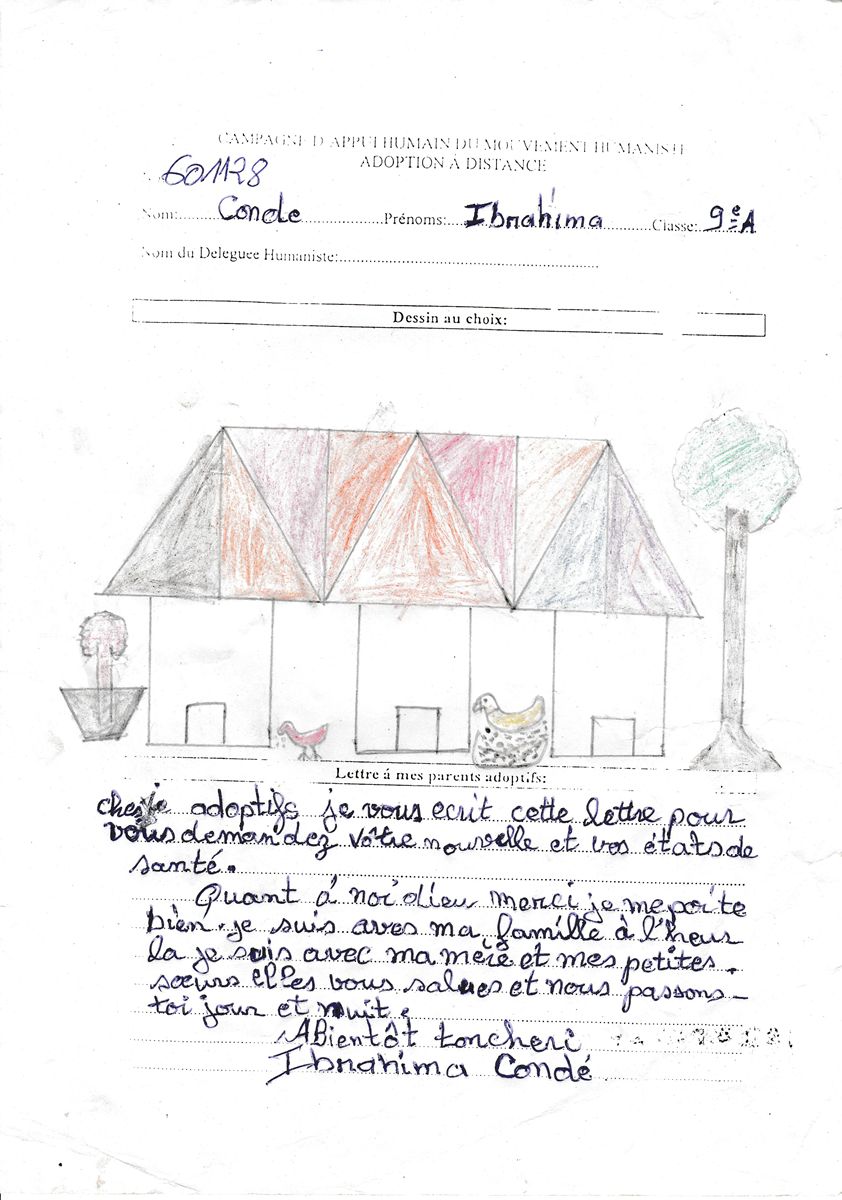 CAMPAGNE D'APPUI HUMAIN DU MOUVEMENT HUMANISTE
ADOPTION À DISTANCE
601128
Nom: Conde Prénoms: Ibrahima Classe: 9e A
Nom du Deleguee Humaniste:
Dessin au choix:
Lettre á mes parents adoptifs:
adoptifs je vous ecrit cette lettre pour
vous demandez vôtre nouvelle et vos états de
santé.
Quant á noi dieu merci je me porte
bien. je suis aves ma famille à l'heur
la je suis avec ma mère et mes petites.
sœurs elles vous salues et nous passons-
toi jour et nuit.
ABientôt toncheri
Ibrahima Condé